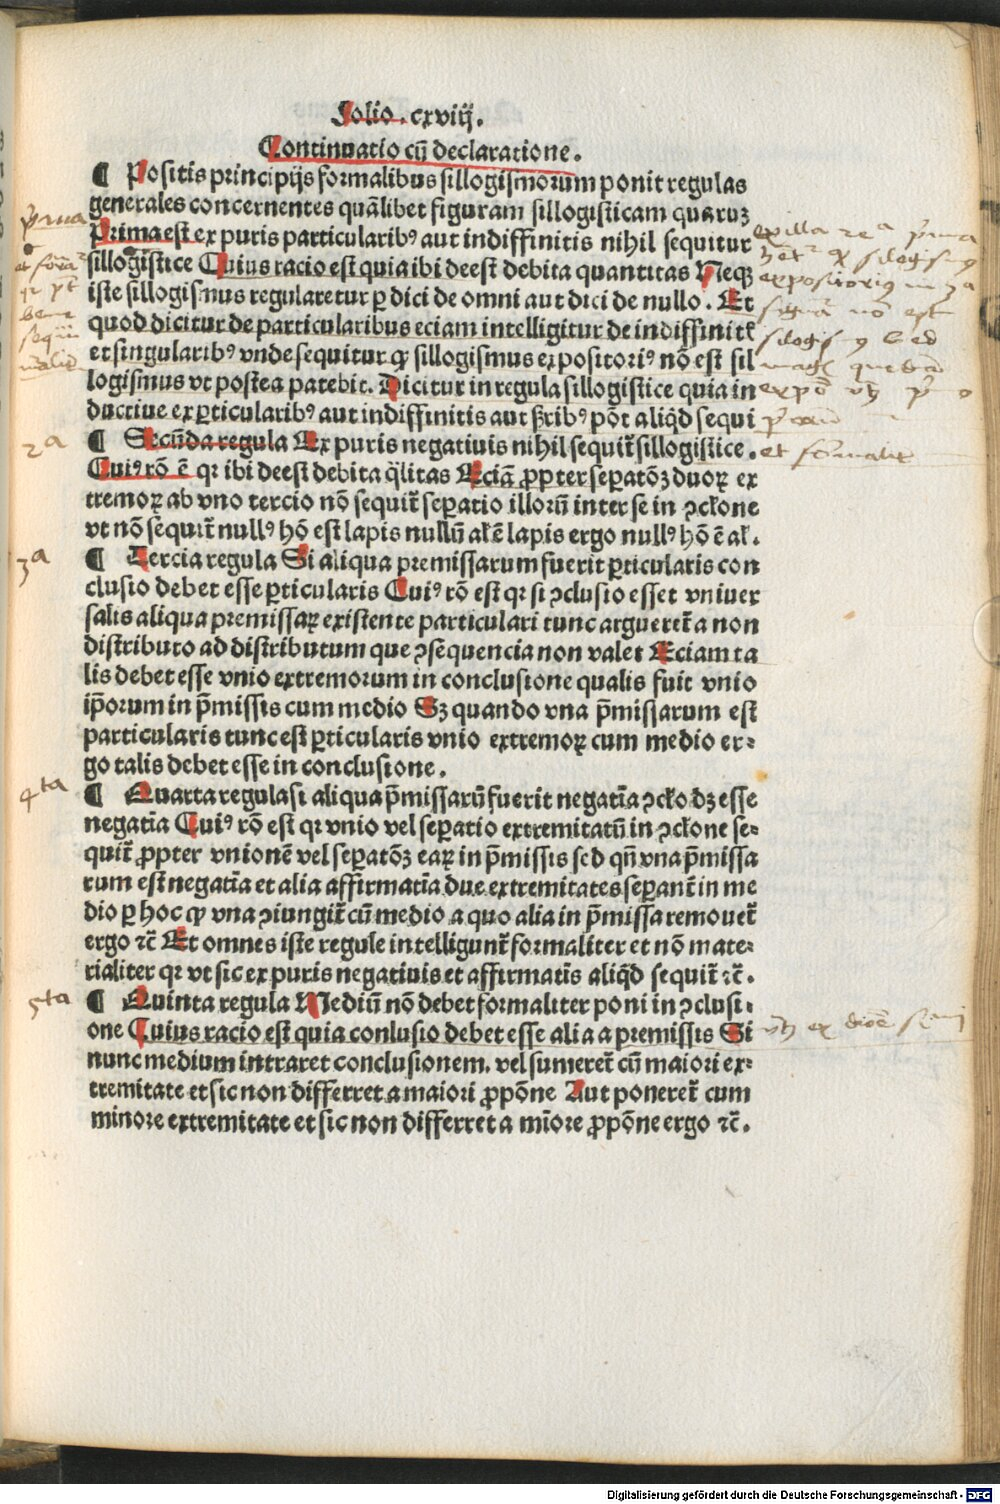 Folio. cxviij.
Continuatio cū declaratione.
¶ Positis principijs formalibus sillogismorum ponit regulas
generales concernentes quālibet figuram sillogisticam quaruꝫ
Prima est ex puris particularibꝰ aut indiffinitis nihil sequitur
sillogistice Cuius racio est quia ibi deest debita quantitas Neqꝫ
iste sillogismus regularetur ꝑ dici de omni aut dici de nullo. Et
quod dicitur de particularibus eciam intelligitur de indiffinitꝭ
et singularibꝰ vnde sequitur ꝙ sillogismus expositoriꝰ nō est sil
logismus vt postea patebit. Dicitur in regula sillogistice quia in
ductiue ex ꝑticularibꝰ aut indiffinitis aut ſꝛibꝰ pōt aliq̇d sequi
¶ Secūda regula Ex puris negatiuis nihil sequit̄ sillogistice.
Cuiꝰ rō ē qꝛ ibi deest debita q̄litas Eciā ꝓpter seꝑatōꝫ duoꝝ ex
tremoꝝ ab vno tercio nō sequit̄ seꝑatio illorū inter se in ꝯcłone
vt nō sequit̄ nullꝰ hō est lapis nullū ał ē lapis ergo nullꝰ hō ē ał.
¶ Tercia regula Si aliqua premissarum fuerit ꝑticularis con
clusio debet esse ꝑticularis Cuiꝰ rō est qꝛ si ꝯclusio esset vniuer
salis aliqua premissaꝝ existente particulari tunc argueret̄ a non
distributo ad distributum que ꝯsequencia non valet Eciam ta
lis debet esse vnio extremorum in conclusione qualis fuit vnio
ip̄orum in p̄missis cum medio Sꝫ quando vna p̄missarum est
particularis tunc est ꝑticularis vnio extremoꝝ cum medio er⸗
go talis debet esse in conclusione.
¶ Quarta regula si aliqua p̄missarū fuerit negatīa ꝯcło dꝫ esse
negatīa Cuiꝰ rō est qꝛ vnio vel seꝑatio extremitatū in ꝯcłone se⸗
quit̄ ꝓpter vnionē vel seꝑatōꝫ eaꝝ in p̄missis sed qn̄ vna p̄missa
rum est negatīa et alia affirmatīa due extremitates seꝑant̄ in me
dio ꝑ hoc ꝙ vna ꝯiungit̄ cū medio a quo alia in p̄missa remouet̄
ergo ⁊c̄ Et omnes iste regule intelligunt̄ formaliter et nō mate⸗
rialiter qꝛ vt sic ex puris negatiuis et affirmatīs aliq̇d sequit̄ ⁊c̄.
¶ Quinta regula Mediū nō debet formaliter poni in ꝯclusi⸗
one Cuius racio est quia conlusio debet esse alia a premissis Si
nunc medium intraret conclusionem. vel sumeret̄ cū maiori ex⸗
tremitate et sic non differret a maiori ꝓpōne Aut poneret̄ cum
minore extremitate et sic non differret a mīore ꝓpōne ergo ⁊c̄.
2ᵃ
3ᵃ
4ᵗᵃ
5ᵗᵃ
Digitalisierung gefördert durch die Deutsche Forschungsgemeinschaft - DFG